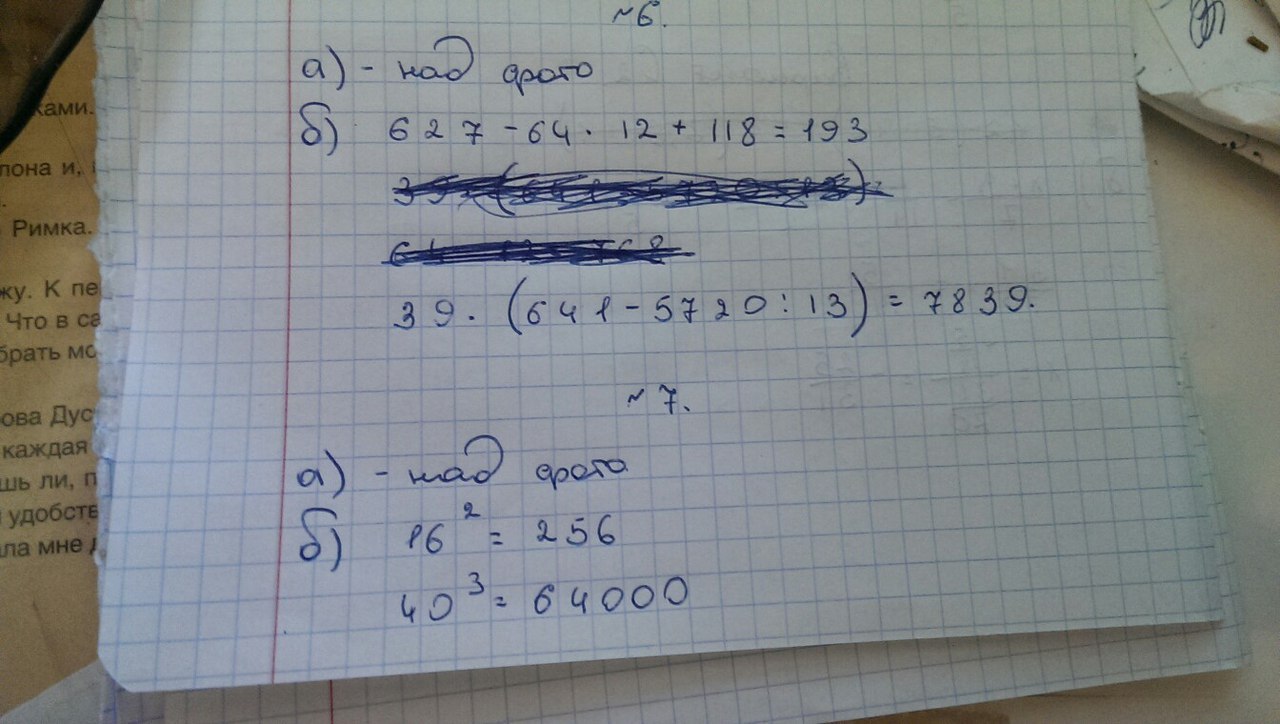 ~6.
а) - над фото
б) 627 - 64 · 12 + 118 = 193
39 · (641 - 5720 : 13) = 7839.
~7.
а) - над фото
б) 16² = 256
40³ = 64000
ками.
лона и,
Римка.
жу. К пе
Что в са
брать мо
ова Дус
каждая
шь ли, п
удобств
ла мне